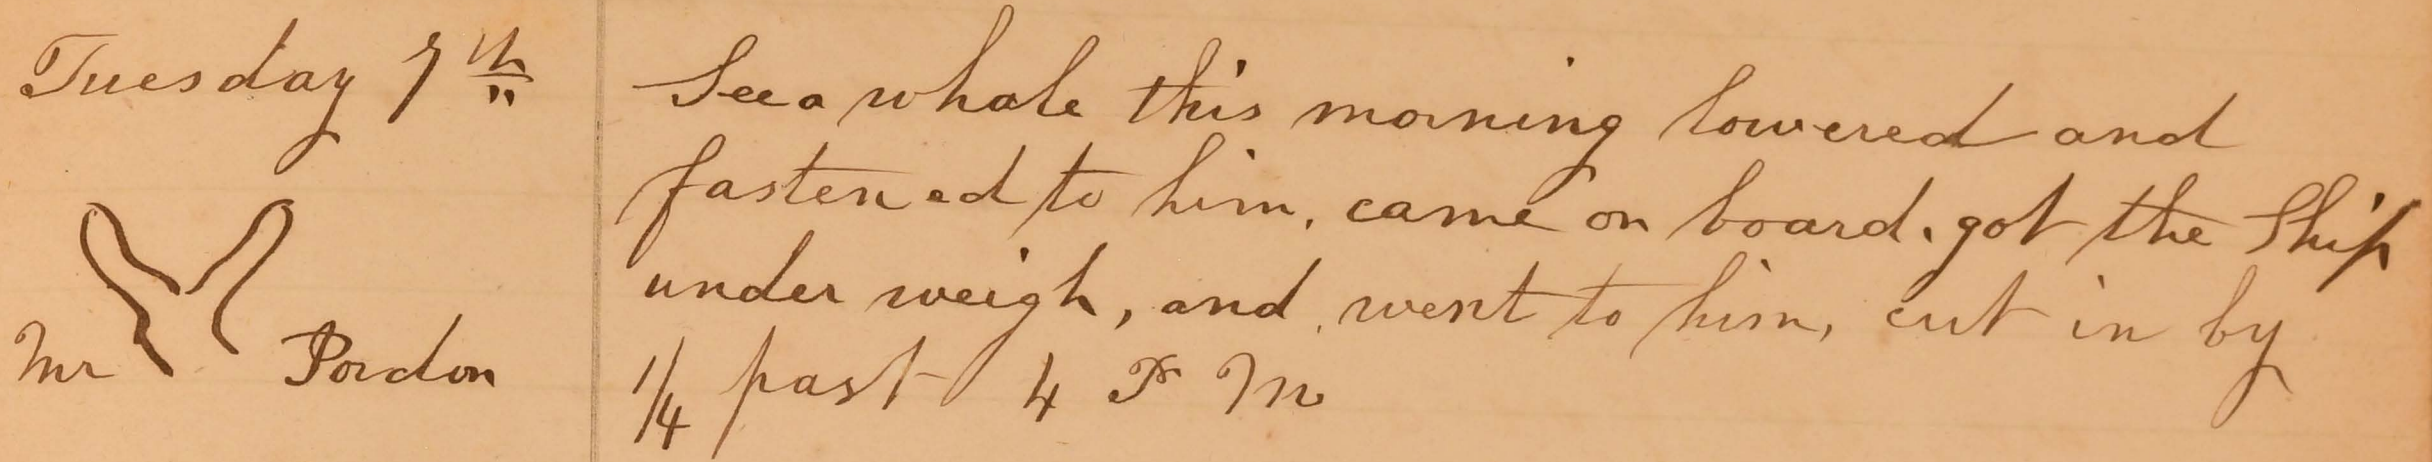 Tuesday 7th
Mr Pordon
See a whale this morning lowered and
fastened to him, came on board, got the Ship
under weigh, and went to him, cut in by
1/4 past 4 P M